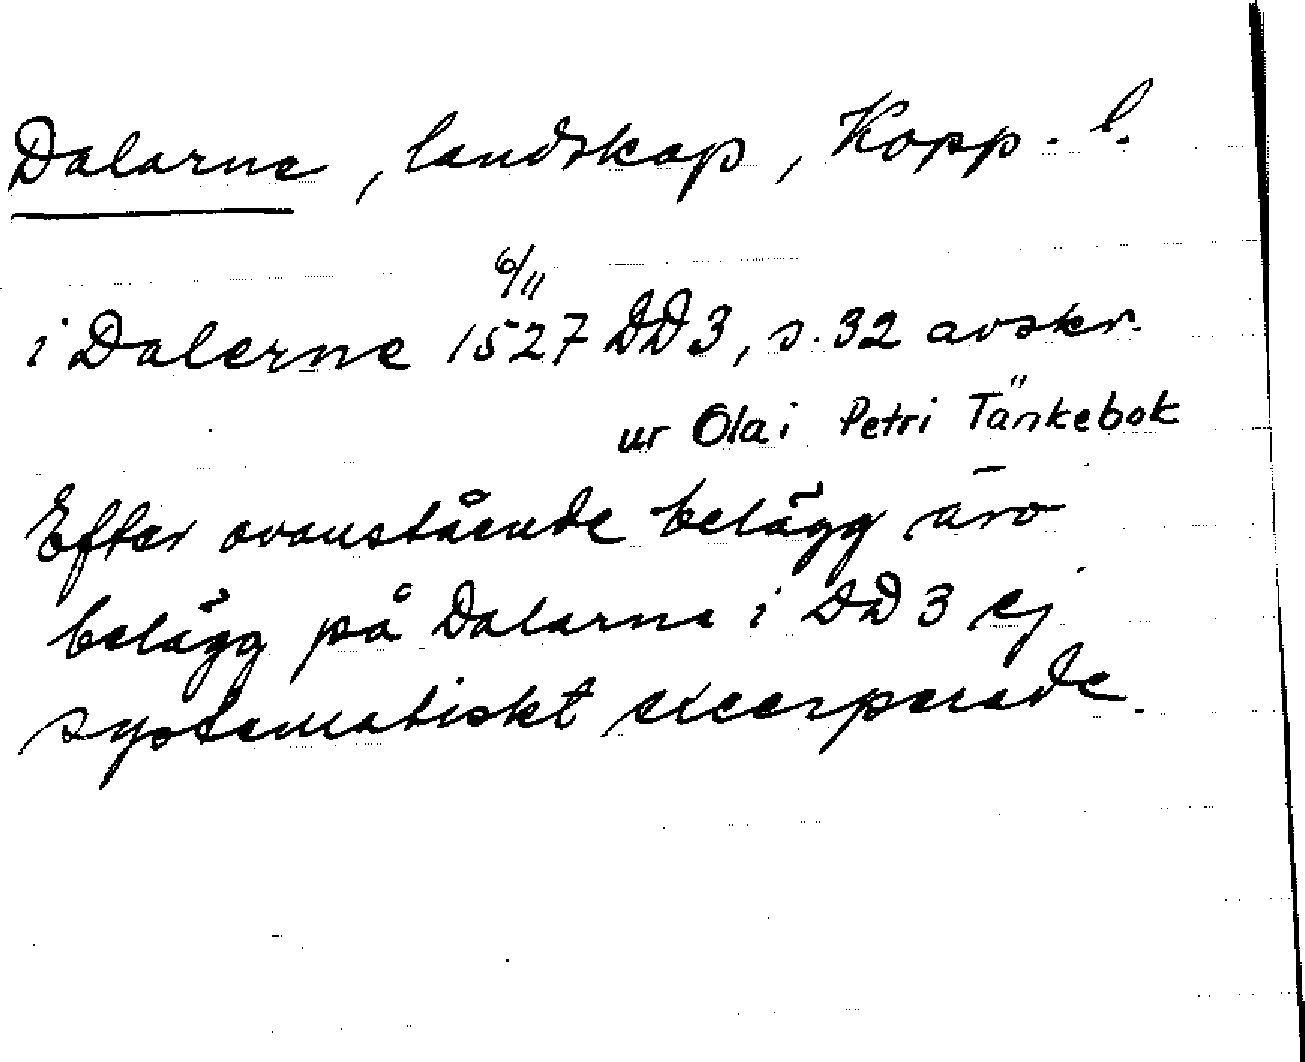 Dalarne, landskap, Kopp. l.
6/11
i Dalerne 1527 DD3, s. 32 avskr.
ur Olai Petri Tänkebok
Efter ovanstående belägg äro
belägg på Dalarna i DD 3 ej
systematiskt excerperade.